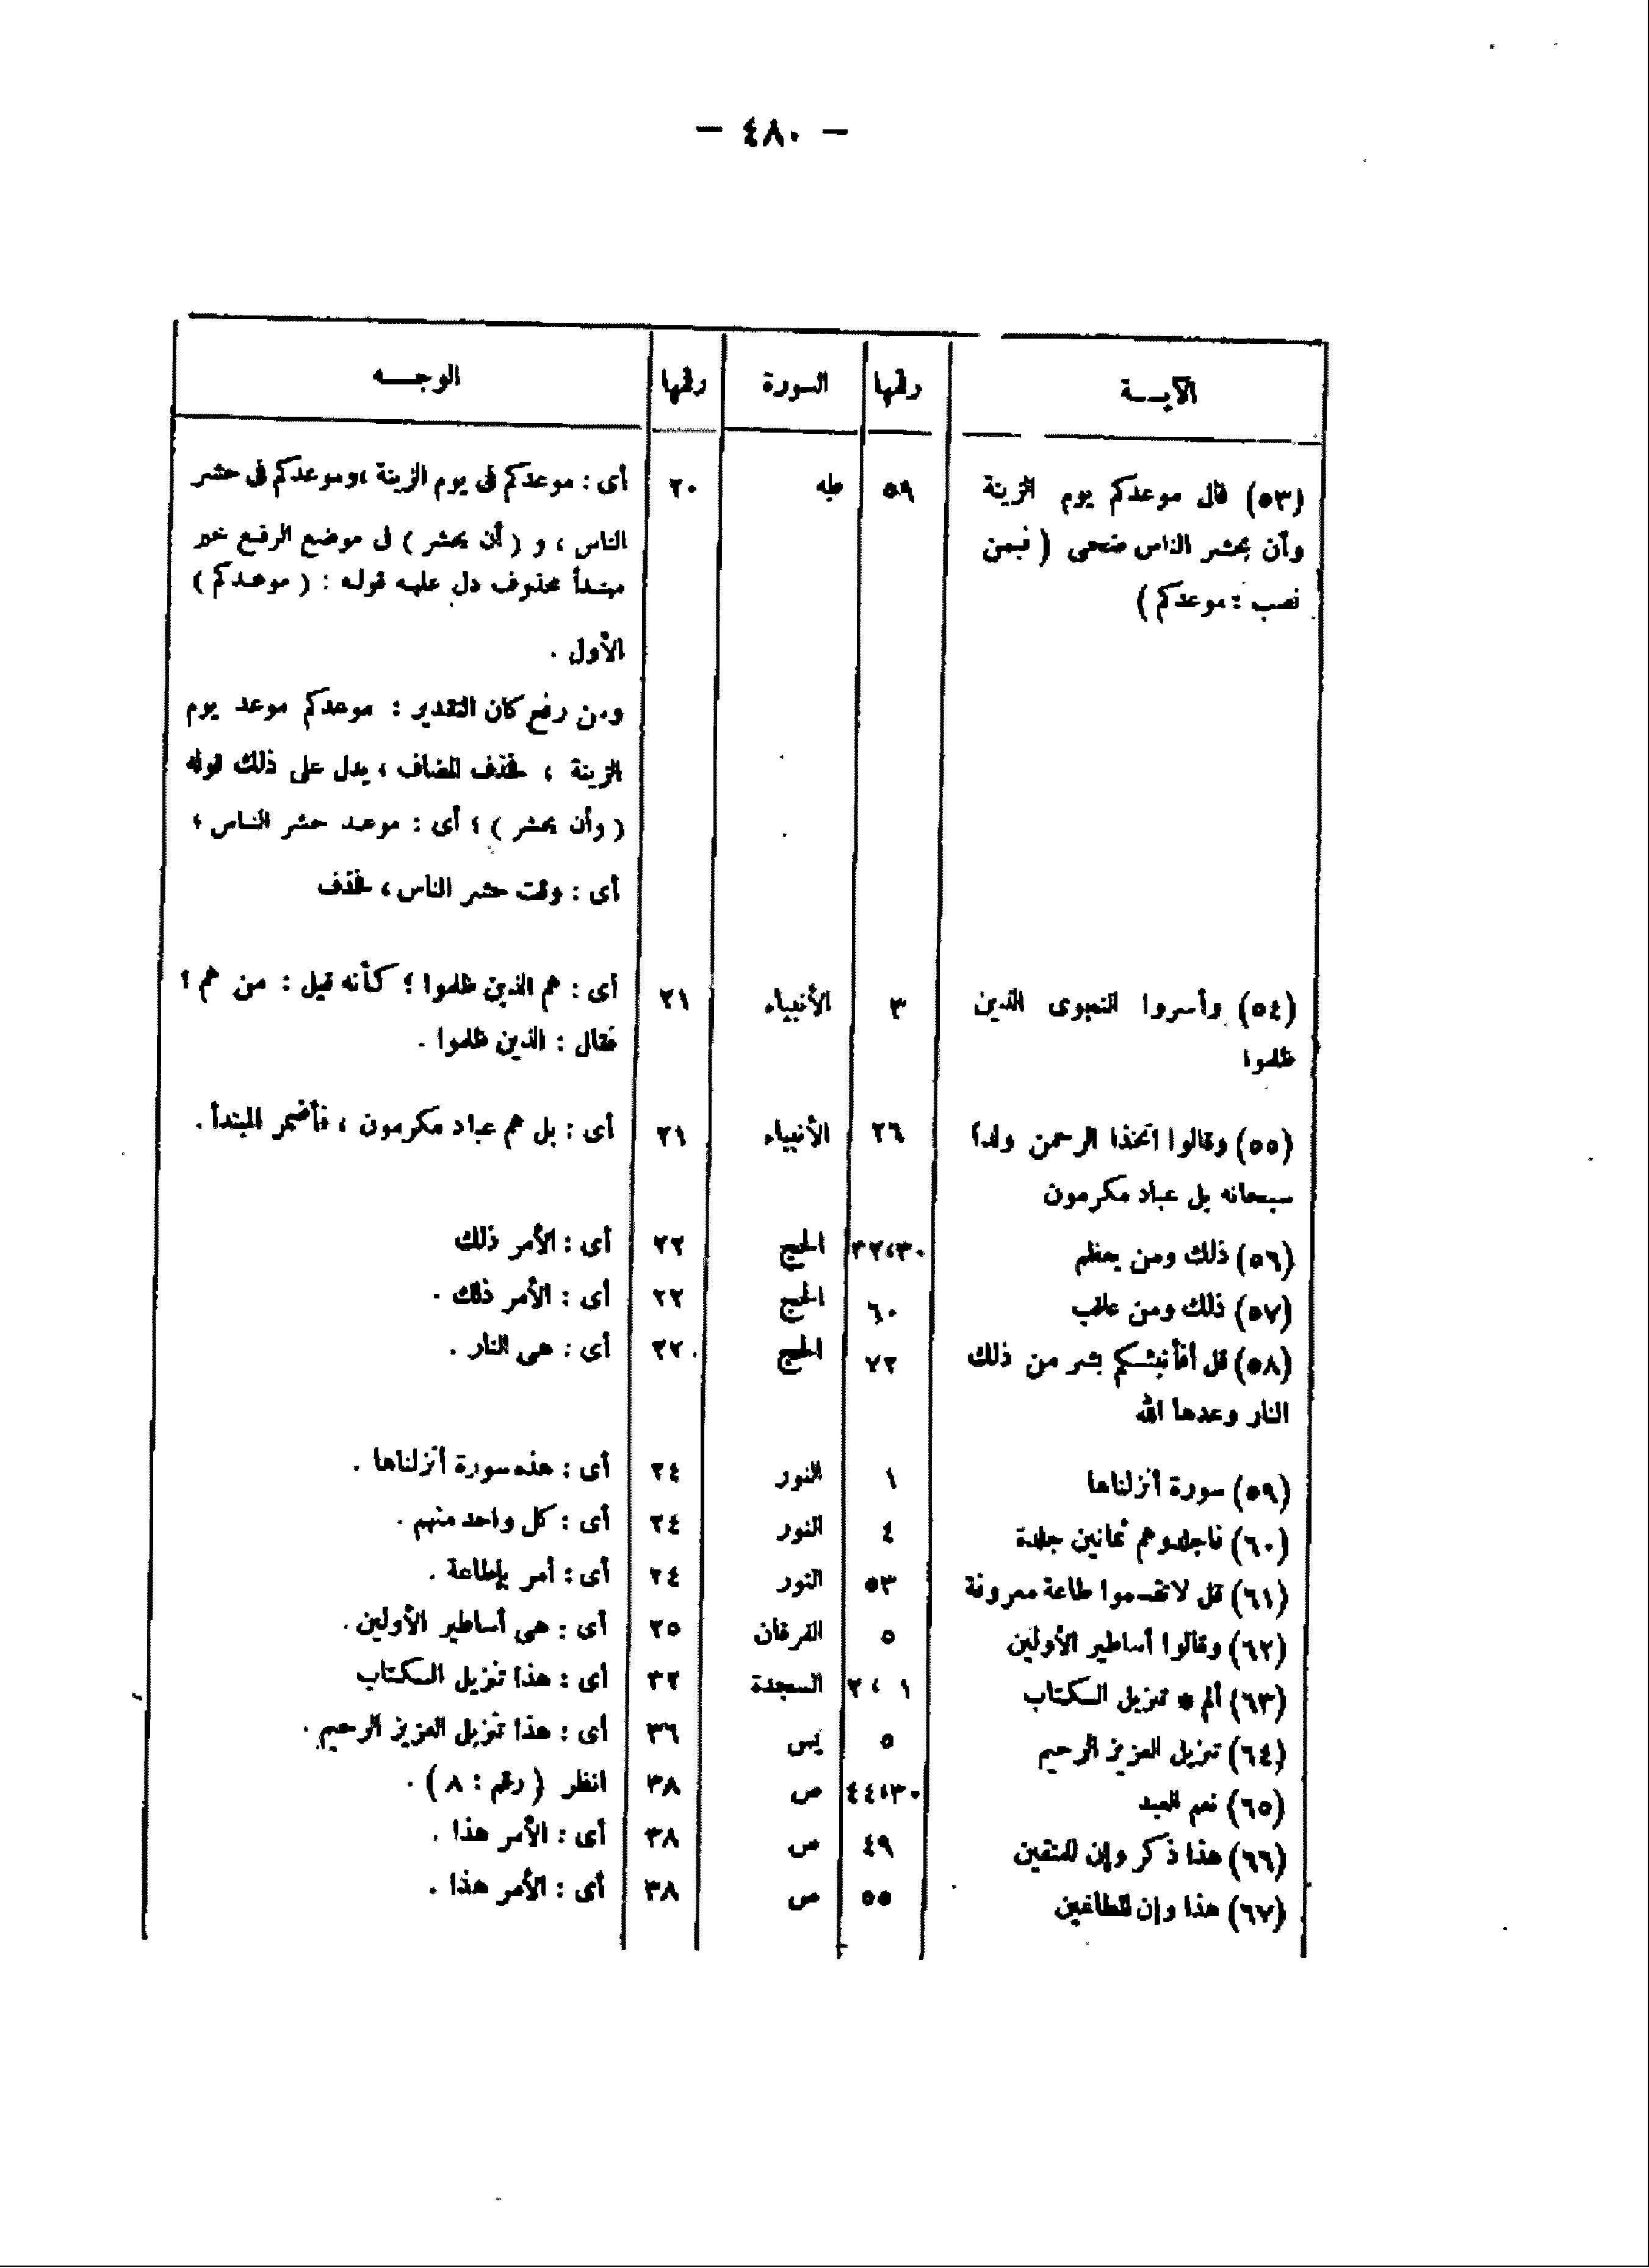 — ٤٨٠ —
الآيـــة رقمها السورة رقمها الوجـــه
(٥٣) قال موعدكم يوم الزينة ٥٩ طه ٢٠ أى : موعدكم فى يوم الزينة ، وموعدكم فى حشر
وأن يحشر الناس ضحى ( فيمن الناس ، و ( أن يحشر ) فى موضع الرفع خبر
نصب : موعدكم ) مبتدأ محذوف دل عليه قوله : ( موعدكم )
الأول .
ومن رفع كان التقدير : موعدكم موعد يوم
الزينة ، فحذف المضاف ، يدل على ذلك قوله
( وأن يحشر ) ؛ أى : موعد حشر الناس ؛
أى : وقت حشر الناس ، فحذف
(٥٤) وأسروا النجوى الذين ٣ الأنبياء ٢١ أى : هم الذين ظلموا ؛ كأنه قيل : من هم ؟
ظلموا فقال : الذين ظلموا .
(٥٥) وقالوا اتخذا الرحمن ولدا ٢٦ الأنبياء ٢١ أى : بل هم عباد مكرمون ، فأضمر المبتدأ .
سبحانه بل عباد مكرمون
(٥٦) ذلك ومن يعظم ٣٢،٣٠ الحج ٢٢ أى : الأمر ذلك
(٥٧) ذلك ومن عاقب ٦٠ الحج ٢٢ أى : الأمر ذلك .
(٥٨) قل أفأنبئكم بشر من ذلك ٧٢ الحج ٢٢ أى : هى النار .
النار وعدها الله
(٥٩) سورة أنزلناها ١ النور ٢٤ أى : هذه سورة أنزلناها .
(٦٠) فاجلدوهم ثمانين جلدة ٤ النور ٢٤ أى : كل واحد منهم .
(٦١) قل لا تقسموا طاعة معروفة ٥٣ النور ٢٤ أى : أمر بإطاعة .
(٦٢) وقالوا أساطير الأولين ٥ الفرقان ٢٥ أى : هى أساطير الأولين .
(٦٣) ألم * تنزيل الكتاب ١ ، ٢ السجدة ٣٢ أى : هذا تنزيل الكتاب
(٦٤) تنزيل العزيز الرحيم ٥ يس ٣٦ أى : هذا تنزيل العزيز الرحيم .
(٦٥) نعم العبد ٤٤،٣٠ ص ٣٨ انظر ( رقم : ٨ ) .
(٦٦) هذا ذكر وإن للمتقين ٤٩ ص ٣٨ أى : الأمر هذا .
(٦٧) هذا وإن للطاغين ٥٥ ص ٣٨ أى : الأمر هذا .